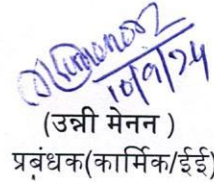 10/9/24
(उन्नी मेनन )
प्रबंधक(कार्मिक/ईई)